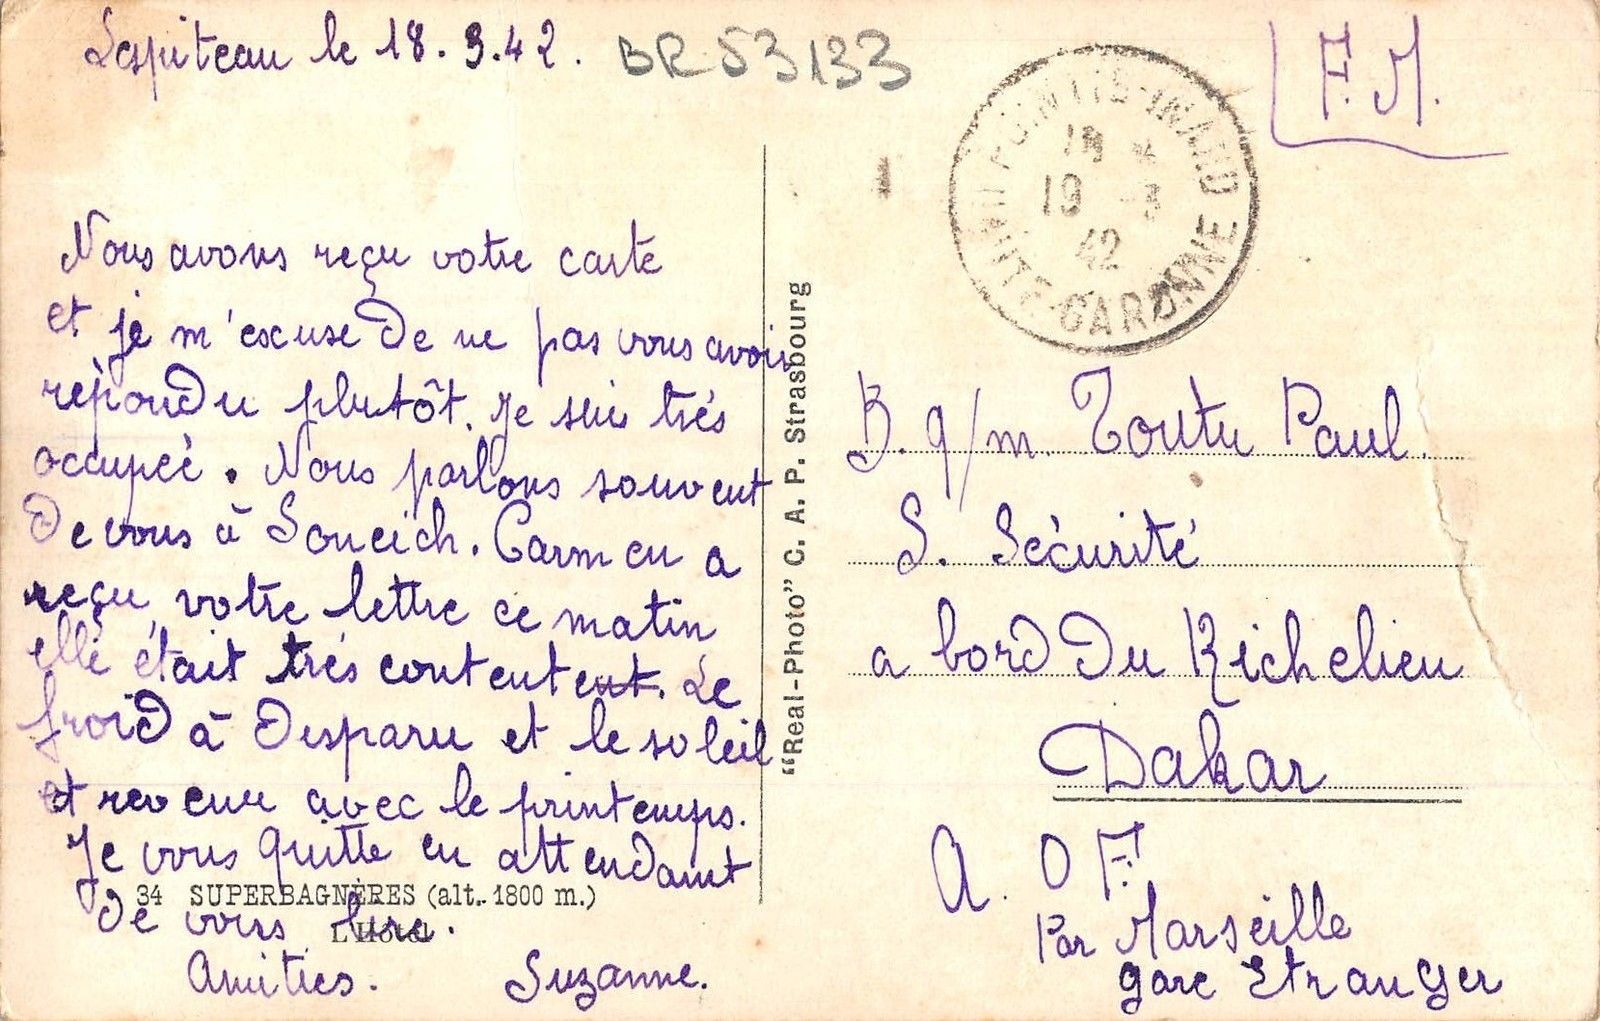 Lespiteau le 18.3.42.
BR 53133
F.M.
PONTIS-INARD
HAUTE-GARONNE
19 -3
42
Nous avons reçu votre carte
et je m'excuse de ne pas vous avoir
répondu plutôt. Je suis trés
occupée. Nous parlons souvent
de vous à Soueich. Carmen a
reçu votre lettre ce matin
elle était trés content ent. Le
froid à disparu et le soleil
et revenu avec le printemps.
Je vous quitte en attendant
de vous lire.
Amitiés. Suzanne.
34 SUPERBAGNÈRES (alt. 1800 m.)
L'Hôtel
"Real-Photo" C. A. P. Strasbourg
B. q/m. Toutu Paul.
S. Sécurité
a bord du Richelieu
Dakar
A. O F.
Par Marseille
gare Etranger